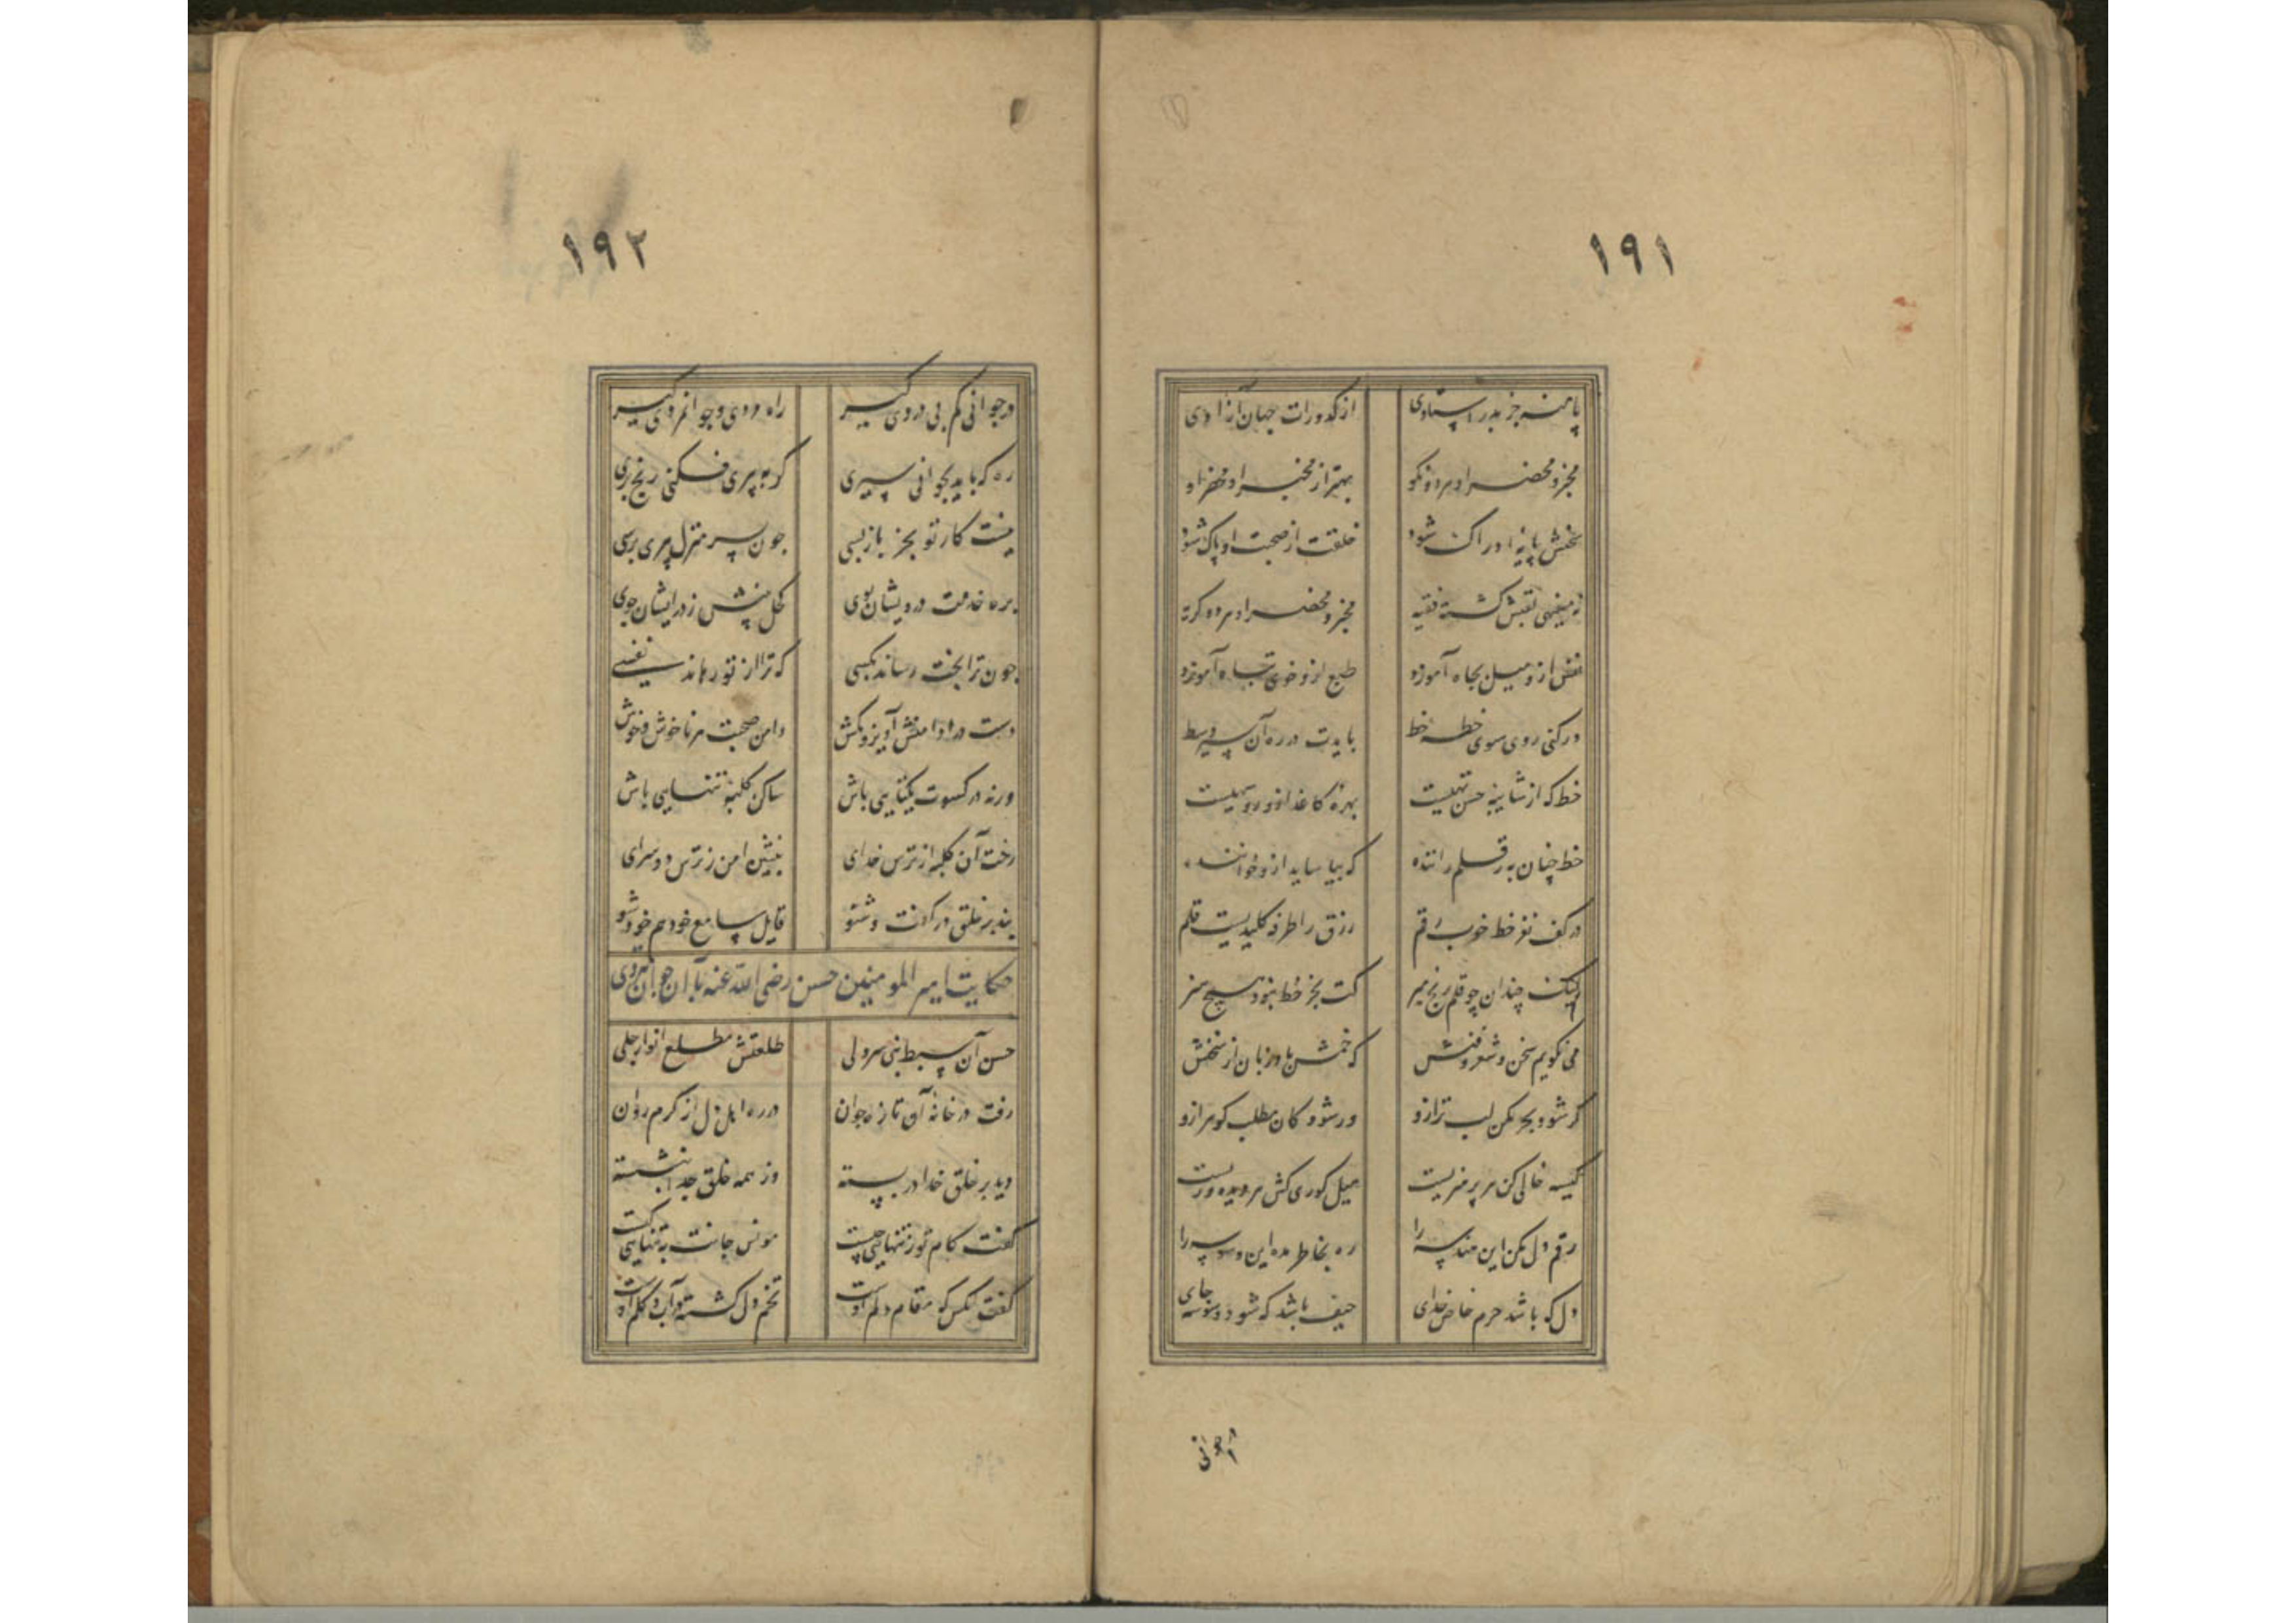 ۱۹۱
پا منه جز بدر استادی از کدورات جهان آزادی
مخبر و محضر او هر دو نکو بهتر از مخبر او محضر او
سخنش پایه ادراک شود خلقت از صحبت او پاک شود
نه سفیهی لقبش گشته فقیه مخبر و محضر او هر دو کریه
نفس ازو میل بجاه آموزد طبع ازو خوی تباه آموزد
ور کنی روی سوی خطه خط بایدت در ره آن سیر وسط
خط که از شاینه حسن تهیست بهره کاغذ ازو روسیهیست
خط چنان به ز قلم راننده که بیاساید ازو خواننده
در کف نغز خط خوب رقم رزق را طرفه کلیدیست قلم
لیک چندان چو قلم رنج مبر کت بجز خط نبود هیچ هنر
می نگویم سخن و شعر و فنش که خمش باد زبان از سخنش
گر شود بحر مکن لب تر ازو ور شود کان مطلب گوهر ازو
کیسه خالی کن هر پر هنریست میل کوری کش هر دیده وریست
رقم دل مکن این هندسه را ره بخاطر مده این وسوسه را
دل که باشد حرم خاص خدای حیف باشد که شود وسوسه جای
در جوانی
۱۹۲
در جوانی کم بی دردی گیر راه دردی و جوانمردی گیر
ره که باید بجوانی سپری گر به پیری فکنی رنج بری
نیست کار تو بجز بازپسی چون بسر منزل پیری برسی
بره خدمت درویشان پوی کحل بینش ز در ایشان جوی
چون ترا بخت رساند بکسی که ترا از تو رهاند نفسی
دست در دامنش آویز و بکش دامن صحبت هر ناخوش و خوش
ورنه در کسوت یکتایی باش ساکن کلبه تنهایی باش
رخت آن کلبه از ترس خدای بنشین امن ز ترس دو سرای
پند بر خلق در گفت و شنو قایل و سامع خود هم خود شو
حکایت امیر المومنین حسن رضی الله عنه با آن جوان
حسن آن سبط نبی سر ولی طلعتش مطلع انوار جلی
رفت در خانه آن تازه جوان در ره اهل دل از کرم روان
دید بر خلق خدا در بسته وز همه خلق جدا بنشسته
گفت کام تو ز تنهایی چیست مونس جانت به تنهایی کیست
گفت آنکس که مقام دلم اوست تخم دل کشته در آب و گلم اوست